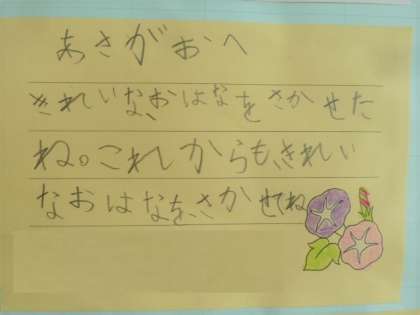 あさがおへ
きれいな、おはなをさかせた
ね。これからも、きれい
なおはなを、さかせてね